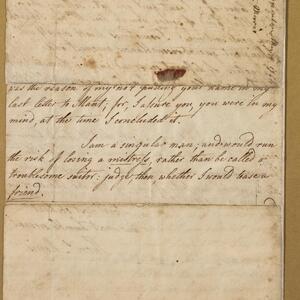 was the reason of my not putting your name in my
last letter to Shant; for, I assure you, you were in my
mind, at the time I concluded it.
I am a singular man; and would run
the risk of losing a mistress, rather than be called a
troublesome suitor: judge, then whether I would tease a
friend.